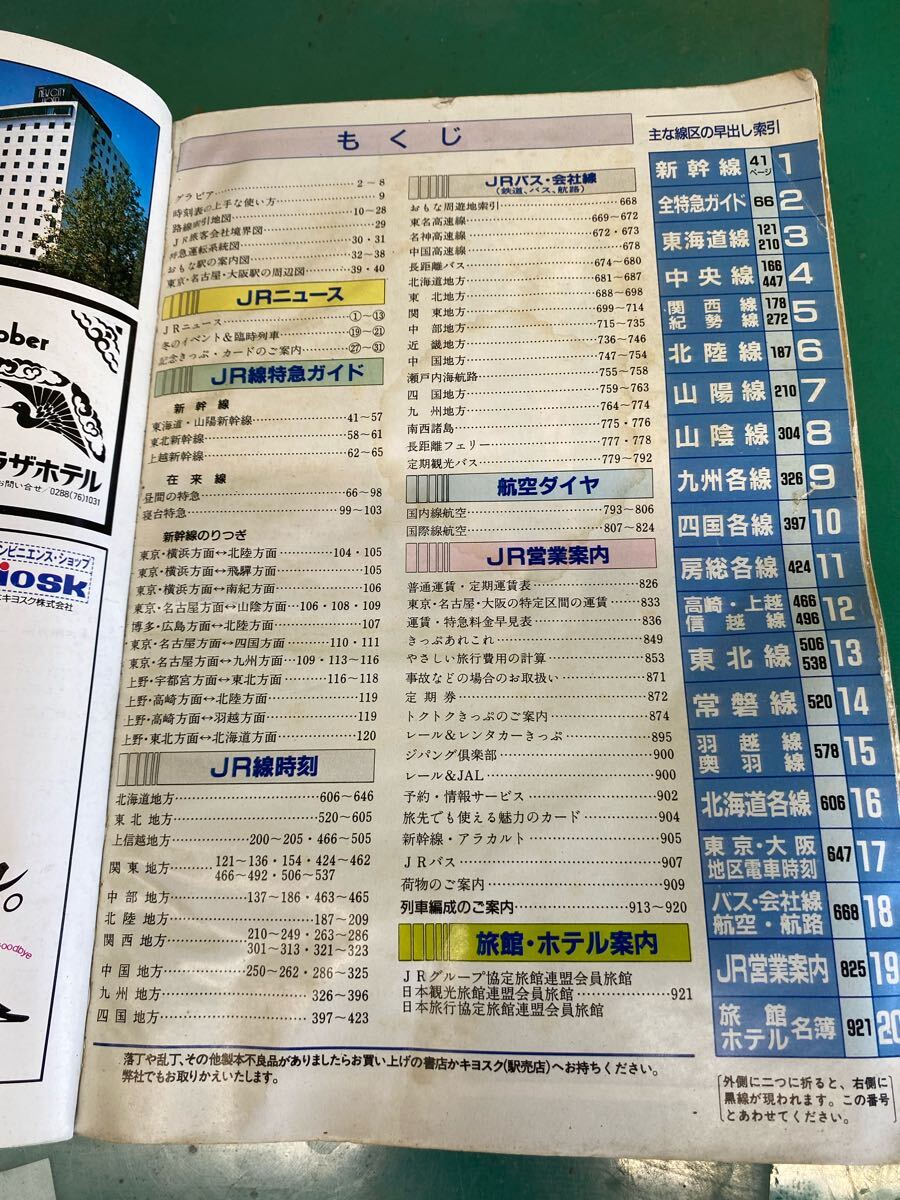 NEW CITY
ober
ラザホテル
お問い合せ/0288(76)1031
ンビニエンス・ショップ
iosk
キヨスク株式会社
oodbye
もくじ
グラビア 2～8
時刻表の上手な使い方 9
路線索引地図 10～28
JR旅客会社境界図 29
特急運転系統図 30・31
おもな駅の案内図 32～38
東京・名古屋・大阪駅の周辺図 39・40
JRニュース
JRニュース ①～⑬
冬のイベント&臨時列車 ⑲～㉑
記念きっぷ・カードのご案内 ㉗～㉛
JR線特急ガイド
新幹線
東海道・山陽新幹線 41～57
東北新幹線 58～61
上越新幹線 62～65
在来線
昼間の特急 66～98
寝台特急 99～103
新幹線のりつぎ
東京・横浜方面↔北陸方面 104・105
東京・横浜方面↔飛騨方面 105
東京・横浜方面↔南紀方面 106
東京・名古屋方面↔山陰方面 106・108・109
博多・広島方面↔北陸方面 107
東京・名古屋方面↔四国方面 110・111
東京・名古屋方面↔九州方面 109・113～116
上野・宇都宮方面↔東北方面 116～118
上野・高崎方面↔北陸方面 119
上野・高崎方面↔羽越方面 119
上野・東北方面↔北海道方面 120
JR線時刻
北海道地方 606～646
東北地方 520～605
上信越地方 200～205・466～505
関東地方 121～136・154・424～462
466～492・506～537
中部地方 137～186・463～465
北陸地方 187～209
関西地方 210～249・263～286
301～313・321～323
中国地方 250～262・286～325
九州地方 326～396
四国地方 397～423
JRバス・会社線
(鉄道、バス、航路)
おもな周遊地索引 668
東名高速線 669～672
名神高速線 672・673
中国高速線 678
長距離バス 674～680
北海道地方 681～687
東北地方 688～698
関東地方 699～714
中部地方 715～735
近畿地方 736～746
中国地方 747～754
瀬戸内海航路 755～758
四国地方 759～763
九州地方 764～774
南西諸島 775・776
長距離フェリー 777・778
定期観光バス 779～792
航空ダイヤ
国内線航空 793～806
国際線航空 807～824
JR営業案内
普通運賃・定期運賃表 826
東京・名古屋・大阪の特定区間の運賃 833
運賃・特急料金早見表 836
きっぷあれこれ 849
やさしい旅行費用の計算 853
事故などの場合のお取扱い 871
定期券 872
トクトクきっぷのご案内 874
レール&レンタカーきっぷ 895
ジパング倶楽部 900
レール&JAL 900
予約・情報サービス 902
旅先でも使える魅力のカード 904
新幹線・アラカルト 905
JRバス 907
荷物のご案内 909
列車編成のご案内 913～920
旅館・ホテル案内
JRグループ協定旅館連盟会員旅館
日本観光旅館連盟会員旅館 921
日本旅行協定旅館連盟会員旅館
落丁や乱丁、その他製本不良品がありましたらお買い上げの書店かキヨスク(駅売店)へお持ちください。
弊社でもお取りかえいたします。
主な線区の早出し索引
新幹線 41ページ 1
全特急ガイド 66 2
東海道線 121 210 3
中央線 166 447 4
関西線 178 5
紀勢線 272
北陸線 187 6
山陽線 210 7
山陰線 304 8
九州各線 326 9
四国各線 397 10
房総各線 424 11
高崎・上越 466 12
信越線 496
東北線 506 538 13
常磐線 520 14
羽越線 578 15
奥羽線
北海道各線 606 16
東京・大阪 647 17
地区電車時刻
バス・会社線 668 18
航空・航路
JR営業案内 825 19
旅館 名簿 921 20
ホテル
外側に二つに折ると、右側に
黒線が現われます。この番号
とあわせてください。